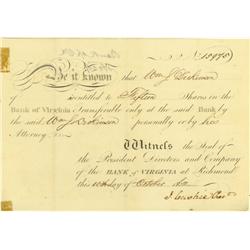 No. 15978
Be it known that Wm J Dickinson
of entitled to Fifteen Shares in the
Bank of Virginia Transferable only at the said Bank by
the said Wm J Dickinson personally or by his
Attorney
Witness the Seal of
the President Directors and Company
of the BANK of VIRGINIA at Richmond
this day of October